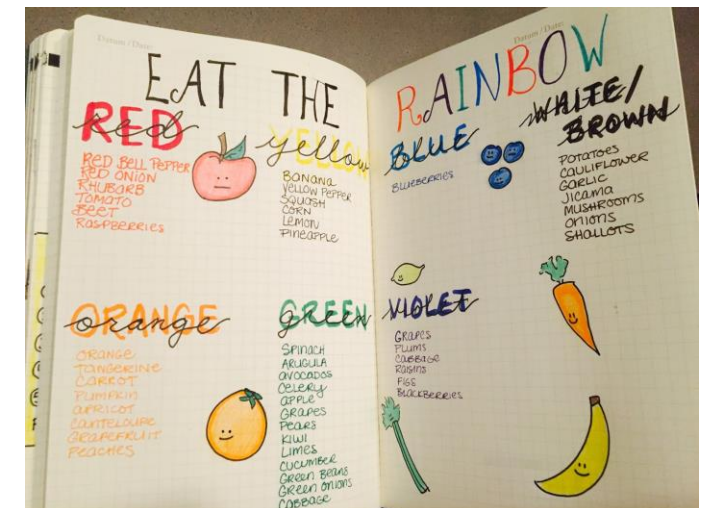 Datum / Date:
EAT THE
RED
red
RED BELL PEPPER
RED ONION
RHUBARB
TOMATO
BEET
RASPBERRIES
YELLOW
yellow
BANANA
YELLOW PEPPER
SQUASH
CORN
LEMON
PINEAPPLE
ORANGE
orange
ORANGE
TANGERINE
CARROT
PUMPKIN
APRICOT
CANTELOUPE
GRAPEFRUIT
PEACHES
GREEN
green
SPINACH
ARUGULA
AVOCADOS
CELERY
APPLE
GRAPES
PEARS
KIWI
LIMES
CUCUMBER
GREEN BEANS
GREEN ONIONS
CABBAGE
Datum / Date:
RAINBOW
BLUE
BLUEBERRIES
WHITE/
BROWN
POTATOES
CAULIFLOWER
GARLIC
JICAMA
MUSHROOMS
ONIONS
SHALLOTS
VIOLET
GRAPES
PLUMS
CABBAGE
RAISINS
FIGS
BLACKBERRIES